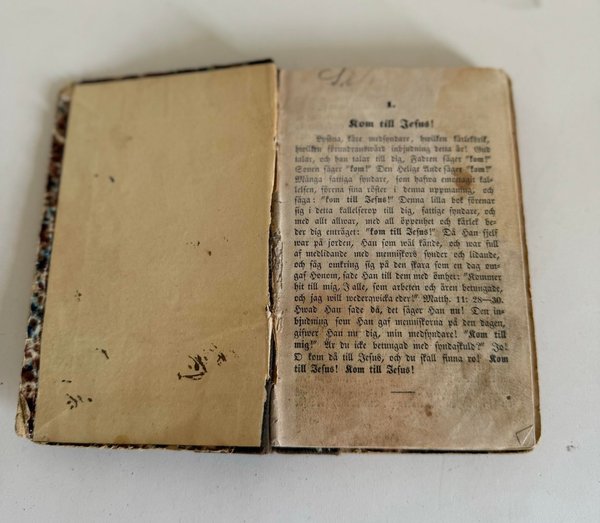 1.
Kom till Jesus!
Lyssna, käre medsyndare, hwilken kärleksrik,
hwilken förundranswärd inbjudning detta är! Gud
talar, och han talar till dig, Fadren säger "kom!"
Sonen säger "kom!" Den Helige Ande säger "kom!"
Många fattiga syndare, som hafwa emottagit kal-
lelsen, förena sina röster i denna uppmaning, och
säga: "kom till Jesus!" Denna lilla bok förenar
sig i detta kallelserop till dig, fattige syndare, och
med allt allwar, med all öppenhet och kärlek be-
der dig enträget: "kom till Jesus!" Då Han sjelf
war på jorden, Han som wäl kände, och war full
af medlidande med menniskors synder och lidande,
och såg omkring sig på den skara som en dag om-
gaf Honom, sade Han till dem med ömhet: "Kommer
hit till mig, I alle, som arbeten och ären betungade,
och jag will wederqwicka eder!" Matth. 11: 28—30.
Hwad Han sade då, det säger Han nu! Den in-
bjudning som Han gaf menniskorna på den dagen,
gifwer Han nu dig, min medsyndare! "Kom till
mig!" Är du icke betungad med syndaskuld?" Jo!
O kom då till Jesus, och du skall finna ro! Kom
till Jesus! Kom till Jesus!